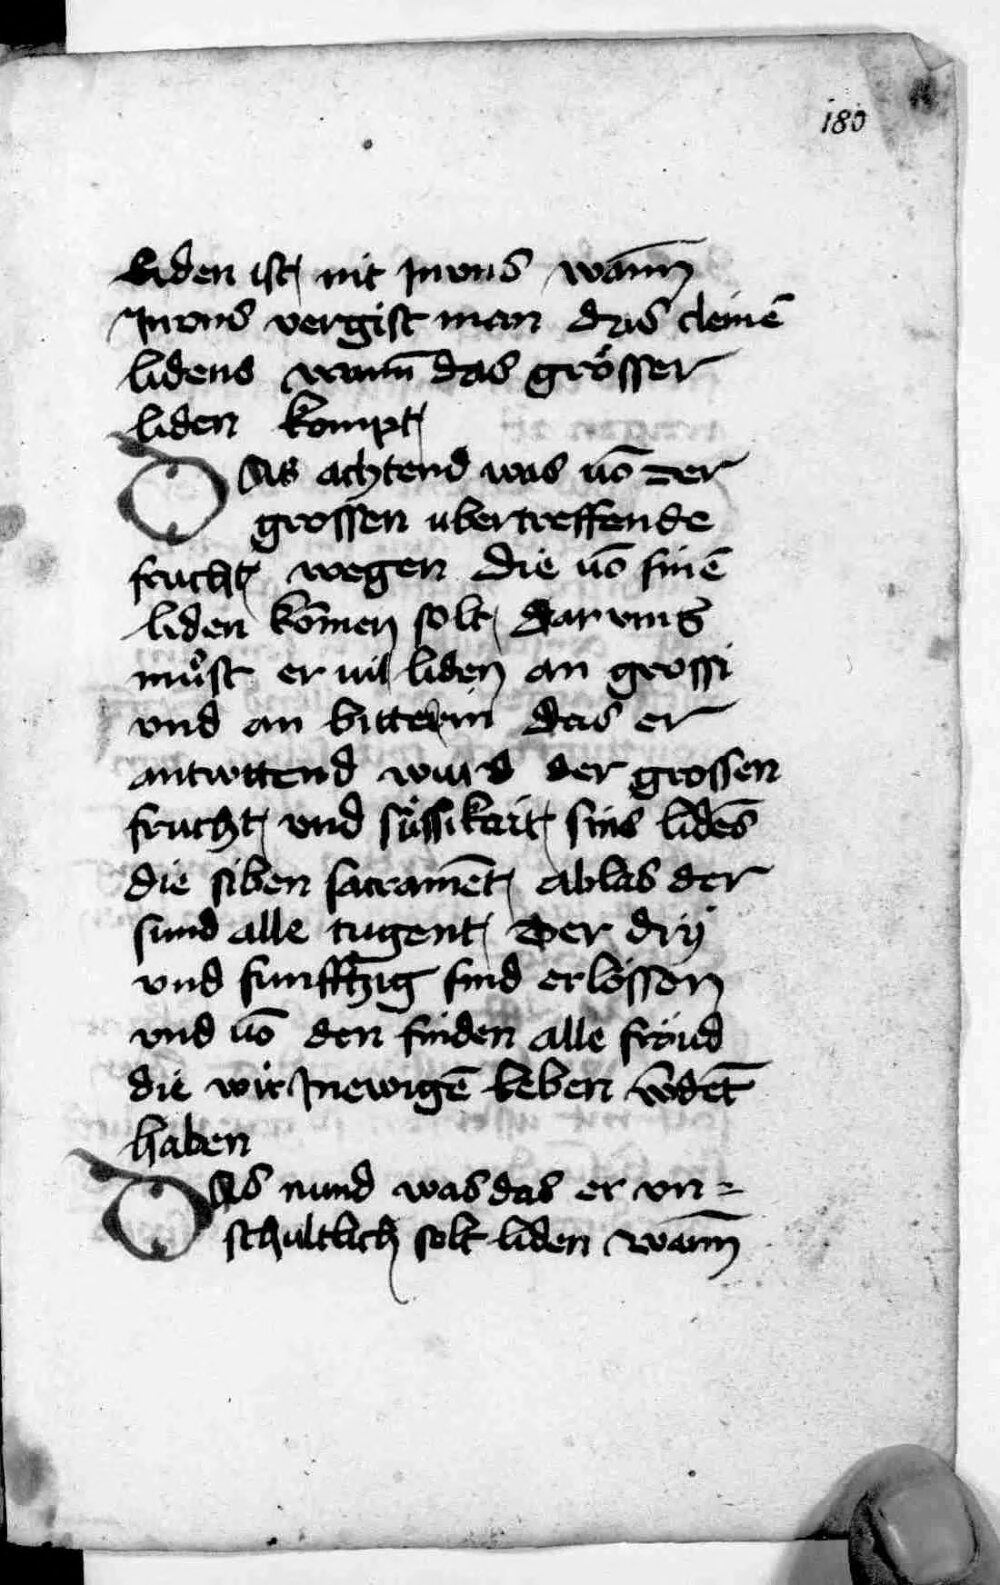 180
liden ist nit In vns wānn
In vns vergist man das cleinē
lidens wann̄ das grösser
liden kompt
Das achtend was uō der
grossen ubertreffende
frucht wegen die uō sinē
liden kōmen solt dar vmb
mu̇st er uil liden an grossi
vnd an bitterin das er
antwttend wurd der grossen
frucht vnd sússikait sins lidēs
die siben sacramēt ablas der
sund alle tugent Der drÿ
vnd funfftzig sind erlössen
vnd uō den sinden alle fröud
die wir In ewigē leben w̄dēt
haben
Das nund was das er vn=
schultlich solt liden wānn